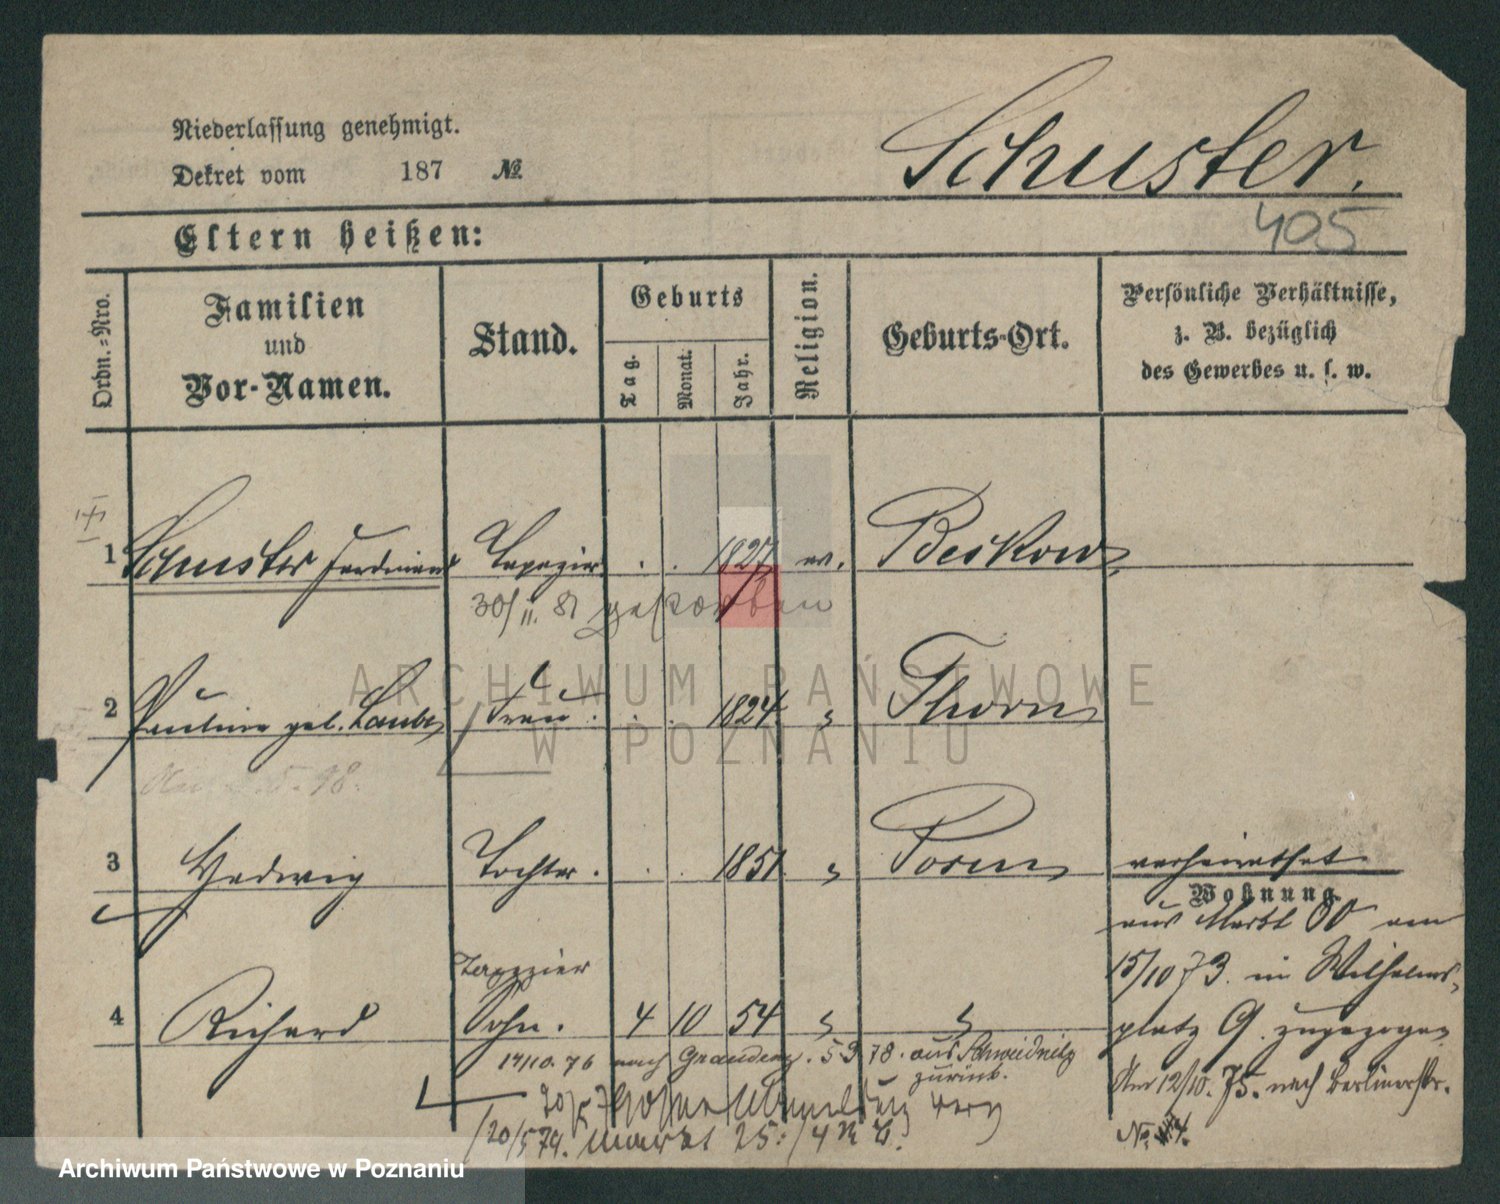 Niederlassung genehmigt.
Dekret vom 187 №
Schuster.
405
Eltern heißen:
Ordn.-Nro.
Familien
und
Vor-Namen.
Stand.
Geburts
Tag.
Monat.
Jahr.
Religion.
Geburts-Ort.
Persönliche Verhältnisse,
z. B. bezüglich
des Gewerbes u. s. w.
1 Schuster Ferdinand Tapezier . . 1827 ev. Beskow
30/11. 81 gestorben
2 Pauline geb. Laube Frau . . . 1824 " Thorn
3 Hedwig Tochter . . . 1851 " Posen verheirathet
Wohnung
aus Markt 60 am
Tapezier
15/10 73. in Wilhelms-
4 Richard Sohn. 4 10 54 " "
platz 9. zugezogen
17/10. 76 nach Graudenz. 5 9 78. aus Schweidnitz
zurück.
Am 12/10. 75. nach Berlinerstr.
No. 4.
20/5 79. Markt 25:
ARCHIWUM PAŃSTWOWE
W POZNANIU
Archiwum Państwowe w Poznaniu